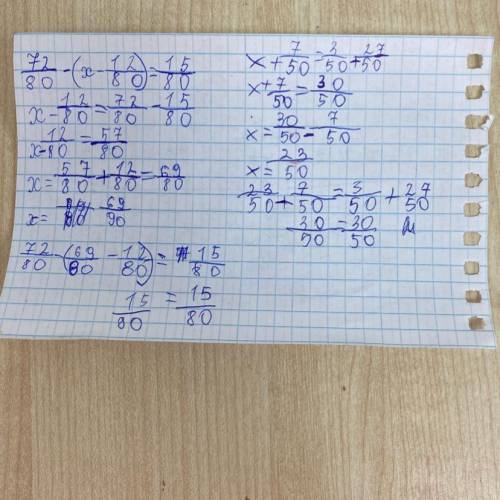 72/80 - (x - 12/80) = 15/80
x - 12/80 = 72/80 - 15/80
x - 12/80 = 57/80
x = 57/80 + 12/80 = 69/80
x = 69/90
72/80 - (69/80 - 12/80) = 15/80
15/90 = 15/80
x + 7/50 = 3/50 + 27/50
x + 7/50 = 30/50
x = 30/50 - 7/50
x = 23/50
23/50 + 7/50 = 3/50 + 27/50
30/50 = 30/50